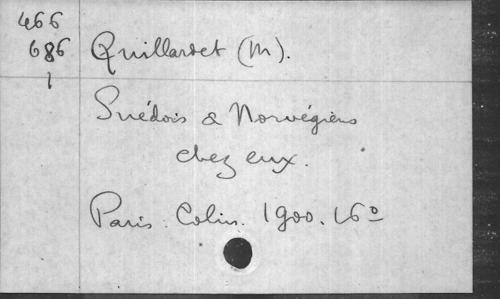 466
686
1
Quillardet (M).
Suédois & Norvégiens
chez eux.
Paris. Colin. 1900. 16°